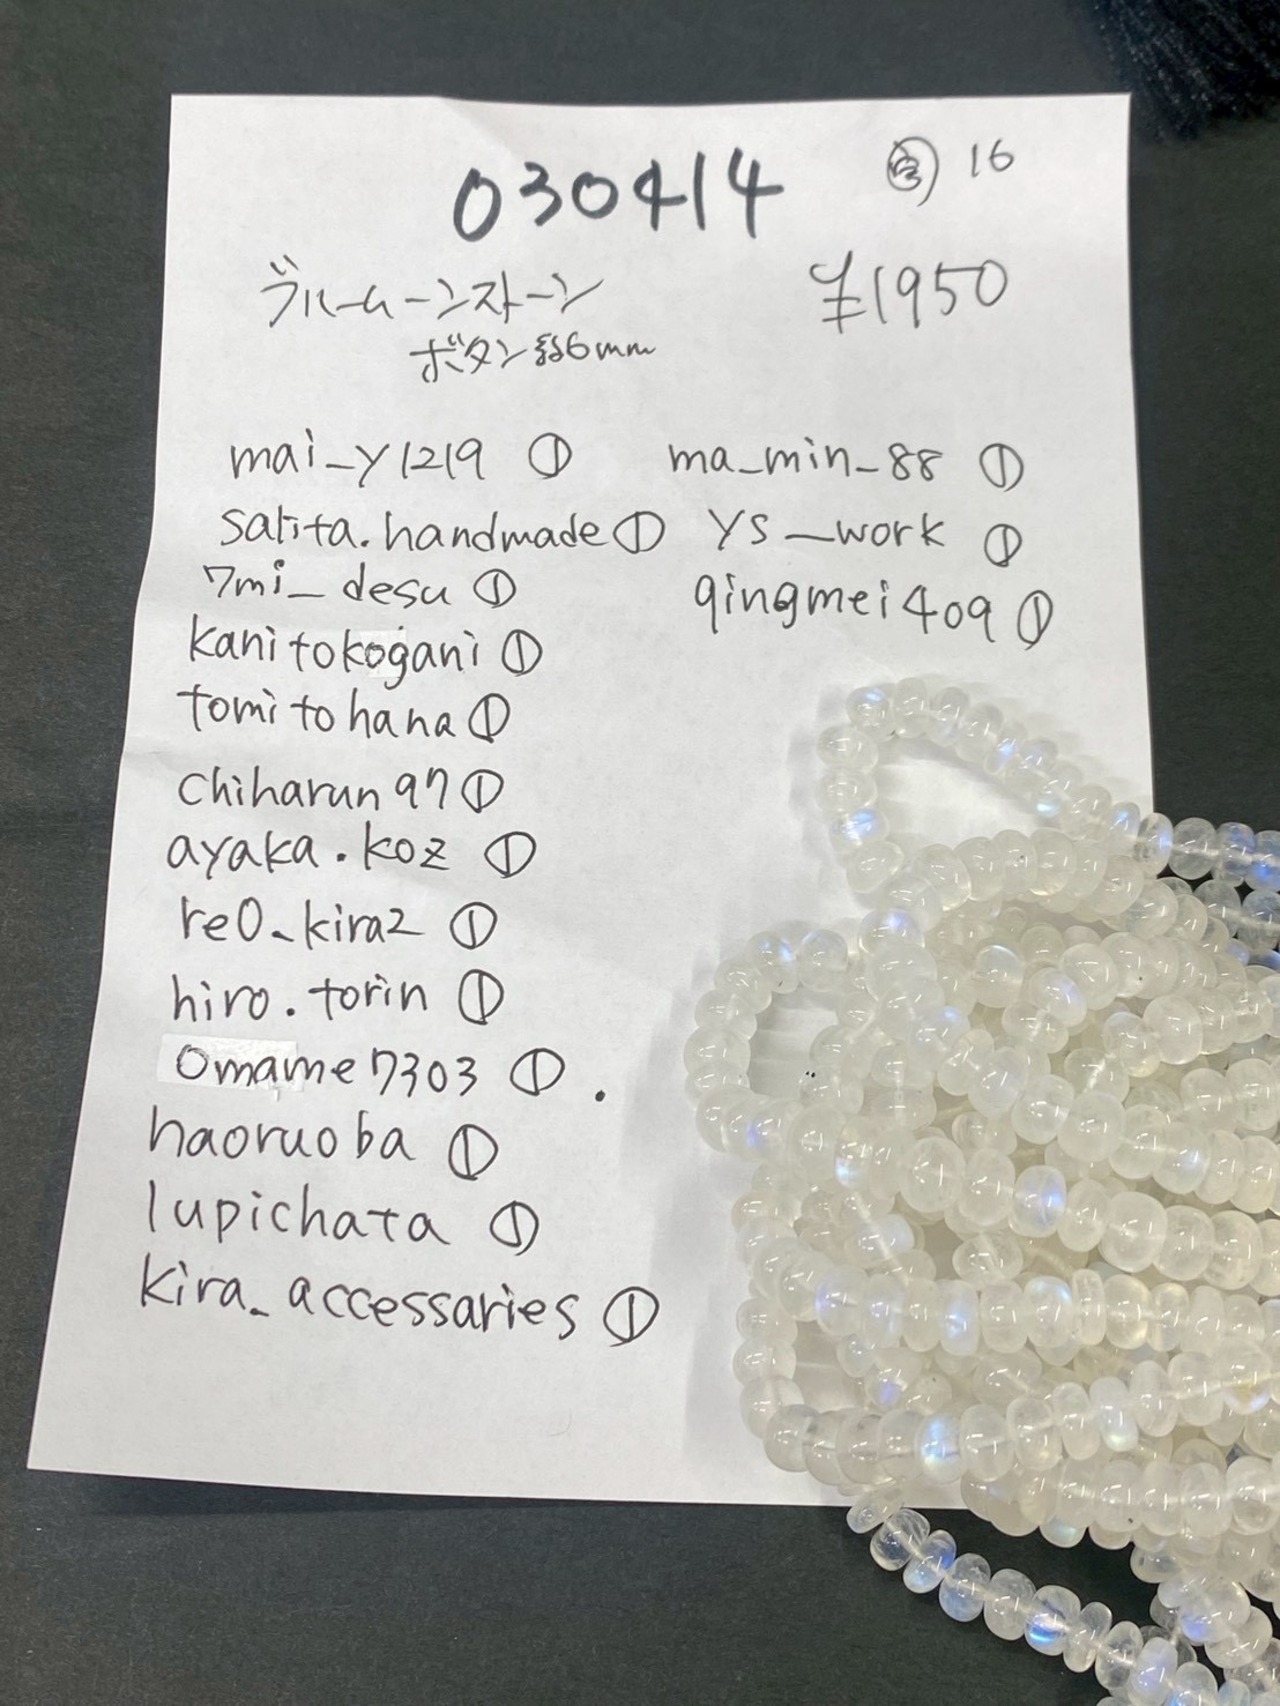 030414
16
ブルームーンストーン
¥1950
ボタン 約6mm
mai_y1219 ①
salita.handmade ①
7mi_desu ①
kanitokogani ①
tomitohana ①
chiharun97 ①
ayaka.koz ①
re0_kira2 ①
hiro.torin ①
omame7303 ①
haoruoba ①
lupichata ①
kira_accessaries ①
ma_min_88 ①
YS_work ①
qingmei409 ①